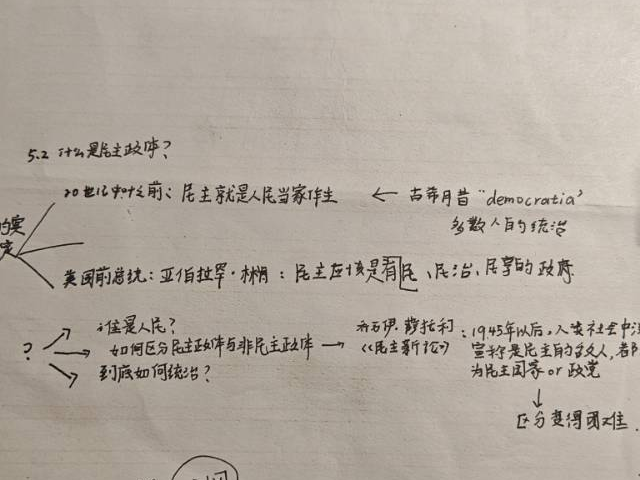 5.2 什么是民主政体？
20世纪中叶之前：民主就是人民当家作主 ← 古希腊昔 "democratia"
多数人的统治
的实
定
美国前总统：亚伯拉罕·林肯：民主应该是有民、民治、民享的政府
谁是人民？
? 如何区分民主政体与非民主政体 → 乔万伊·萨托利：1945年以后，人类社会中
《民主新论》 宣称是民主的多人，都
到底如何统治？ 为民主国家 or 政党
↓
区分变得困难.